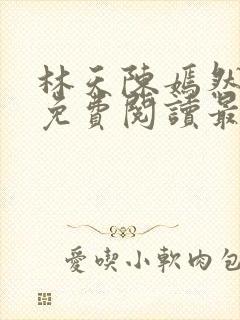 林天陳嫣然
免費閱讀最
愛喫小軟肉包